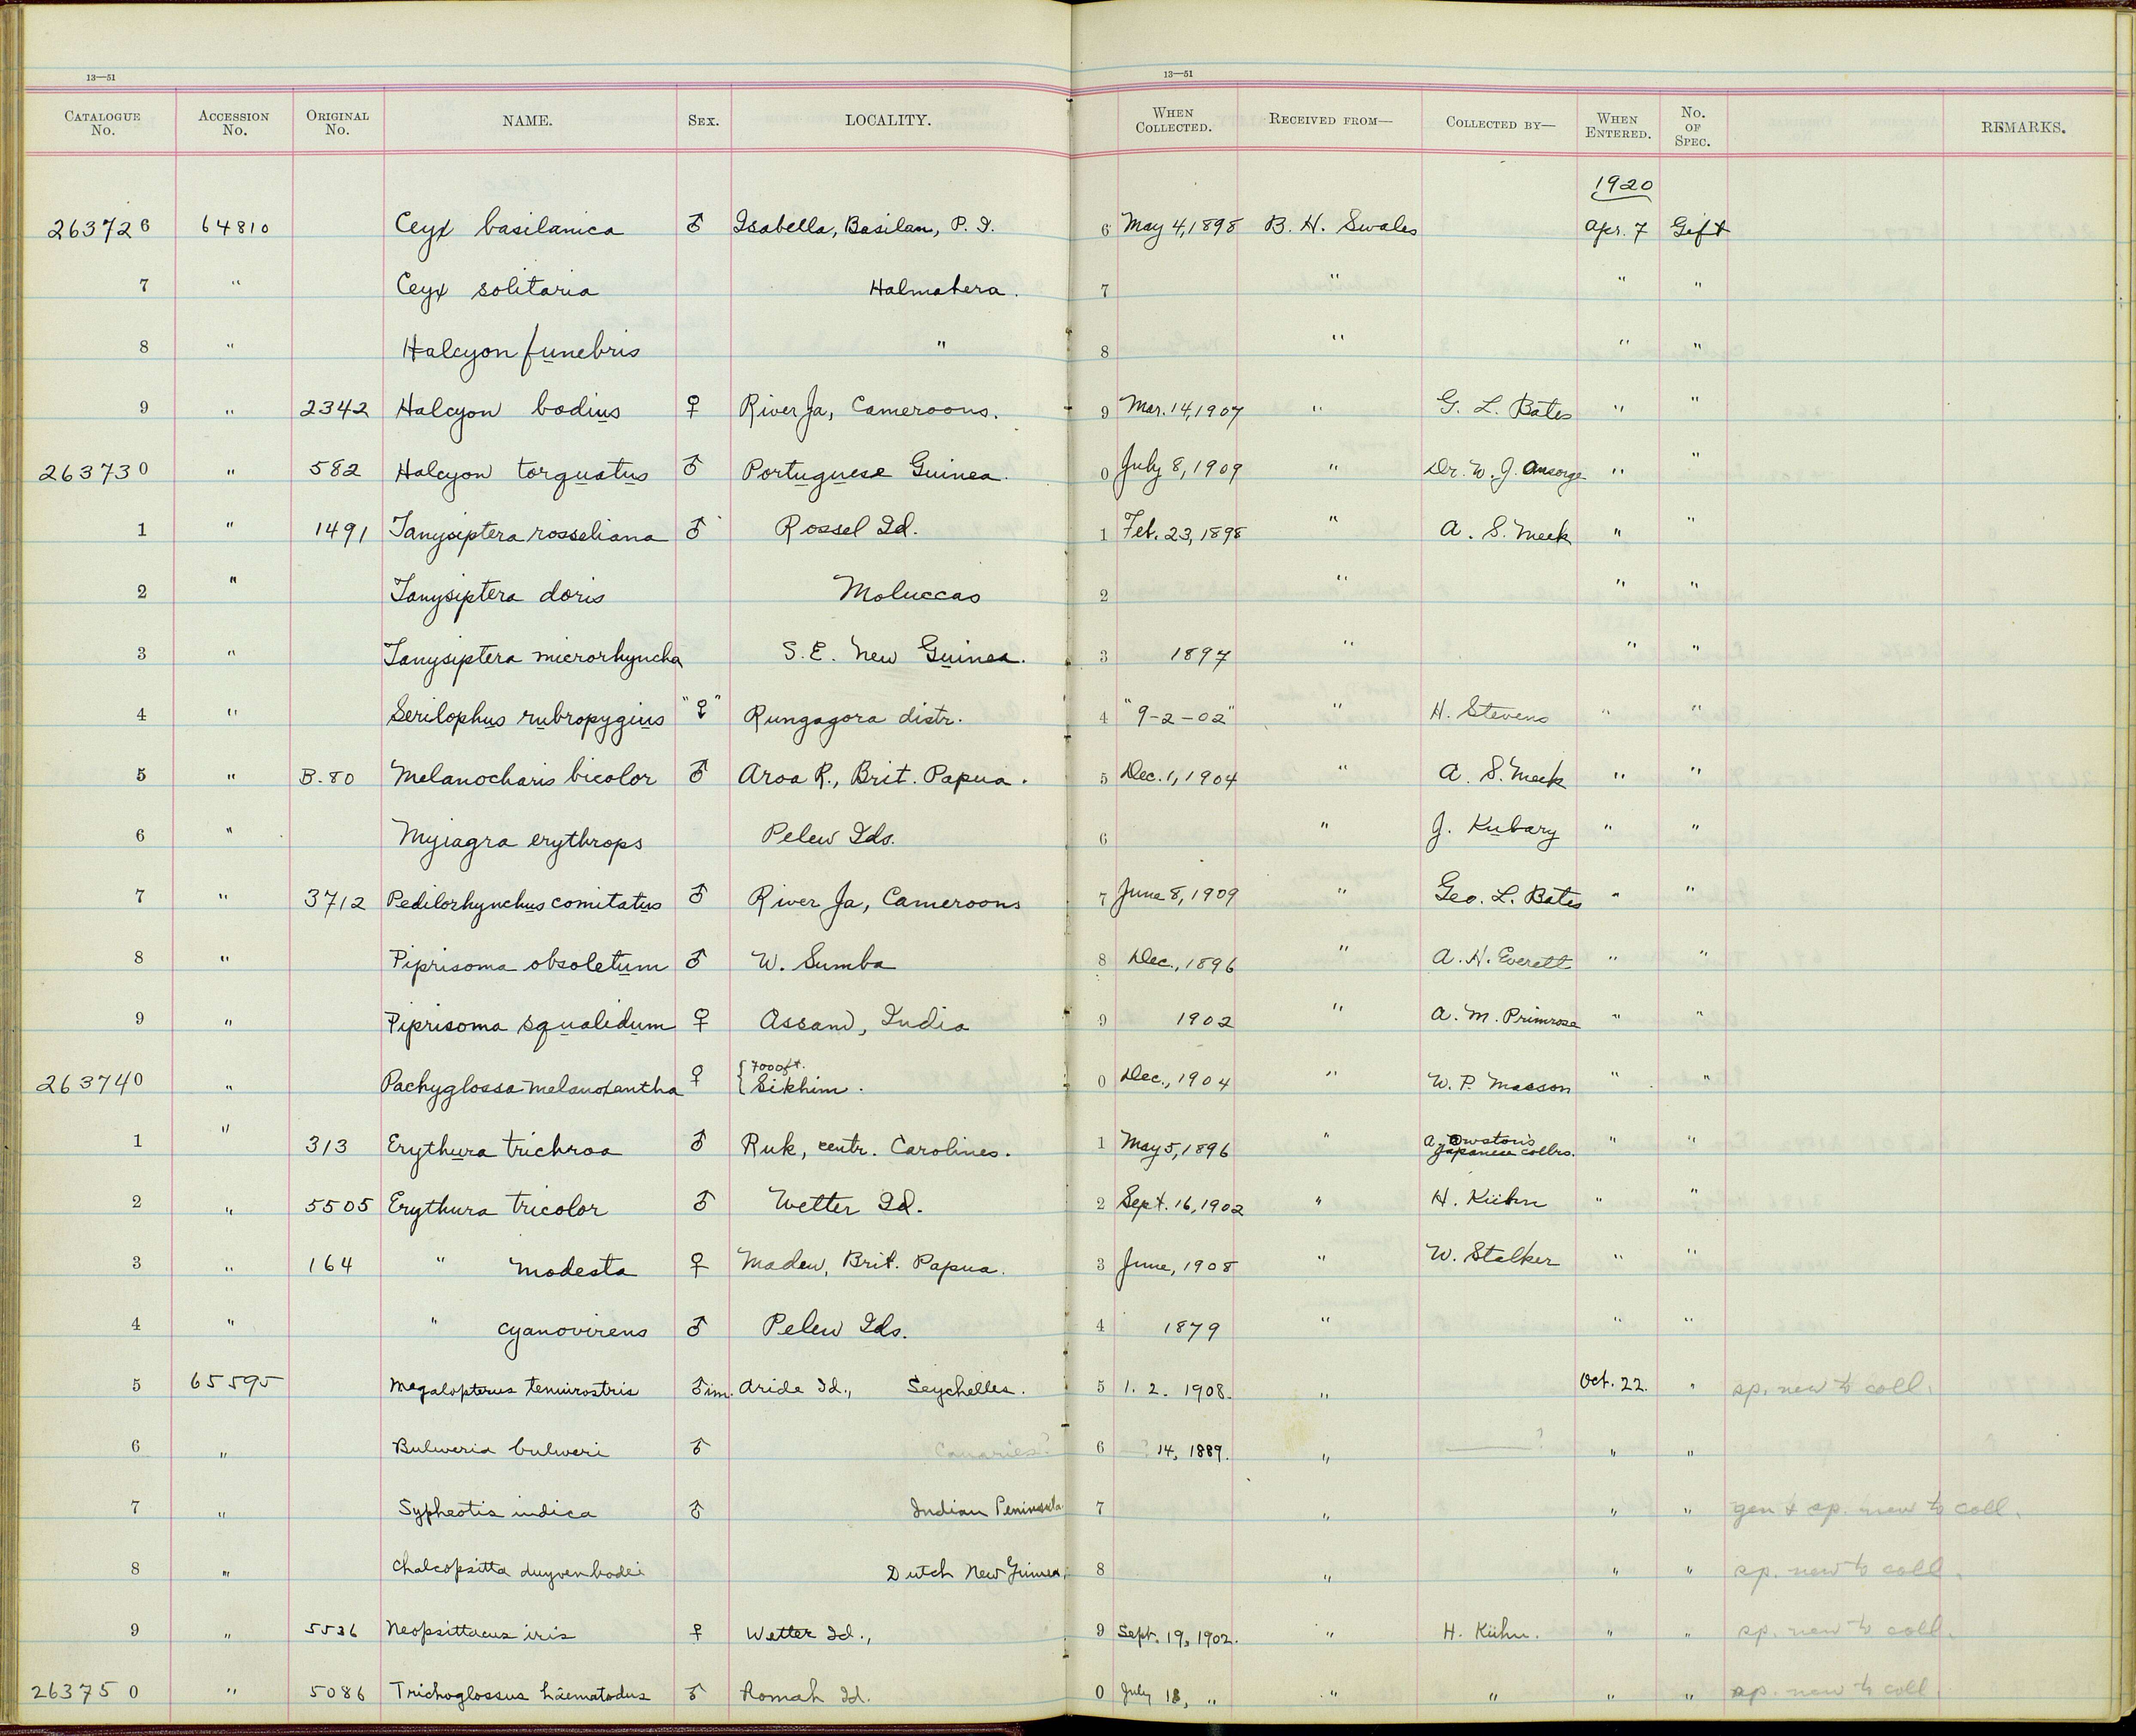 13—51 13—51
CATALOGUE No. ACCESSION No. ORIGINAL No. NAME. SEX. LOCALITY. WHEN COLLECTED. RECEIVED FROM— COLLECTED BY— WHEN ENTERED. No. OF SPEC. REMARKS.
1920
263726 64810 Ceyx basilanica ♂ Isabella, Basilan, P. I. 6 May 4, 1898 B. H. Swales Apr. 7 Gift
7 " Ceyx solitaria Halmahera. 7 " " "
8 " Halcyon funebris " 8 " " "
9 " 2342 Halcyon badius ♀ River Ja, Cameroons. 9 Mar. 14, 1907 " G. L. Bates " "
263730 " 582 Halcyon torquatus ♂ Portuguese Guinea. 0 July 8, 1909 " Dr. W. J. Ansorge " "
1 " 1491 Tanysiptera rosseliana ♂ Rossel Id. 1 Feb. 23, 1898 " A. S. Meek " "
2 " Tanysiptera doris Moluccas 2 " " "
3 " Tanysiptera microrhyncha S. E. New Guinea. 3 1897 " " "
4 " Serilophus rubropygius "♀" Rungagora distr. 4 "9-2-02" " H. Stevens " "
5 " B.80 Melanocharis bicolor ♂ Aroa R., Brit. Papua. 5 Dec. 1, 1904 " A. S. Meek " "
6 " Myiagra erythrops Pelew Ids. 6 " J. Kubary " "
7 " 3712 Pedilorhynchus comitatus ♂ River Ja, Cameroons 7 June 8, 1909 " Geo. L. Bates " "
8 " Piprisoma obsoletum ♂ W. Sumba 8 Dec., 1896 " A. H. Everett " "
9 " Piprisoma squalidum ♀ Assam, India 9 1902 " A. M. Primrose " "
263740 " Pachyglossa melanoxantha ♀ { 7000 ft. Sikhim. 0 Dec., 1904 " W. P. Masson " "
1 " 313 Erythura trichroa ♂ Ruk, centr. Carolines. 1 May 5, 1896 " A. Owston's Japanese collrs. " "
2 " 5505 Erythura tricolor ♂ Wetter Id. 2 Sept. 16, 1902 " H. Kühn " "
3 " 164 " modesta ♀ Madew, Brit. Papua. 3 June, 1908 " W. Stalker " "
4 " " cyanovirens ♂ Pelew Ids. 4 1879 " " "
5 65595 Megalopterus tenuirostris ♂ im. Aride Id., Seychelles. 5 1. 2. 1908. " Oct. 22. " sp. new to coll.
6 " Bulweria bulweri ♂ Canaries? 6 —? 14, 1889. " ——? " "
7 " Sypheotis indica ♂ Indian Peninsula 7 " " " gen & sp. new to coll.
8 " Chalcopsitta duyvenbodei Dutch New Guinea, 8 " " " sp. new to coll.
9 " 5536 Neopsittacus iris ♀ Wetter Id., 9 Sept. 19, 1902. " H. Kühn. " " sp. new to coll.
263750 " 5086 Trichoglossus haematodus ♂ Romah Id. 0 July 18, " " " " " sp. new to coll.